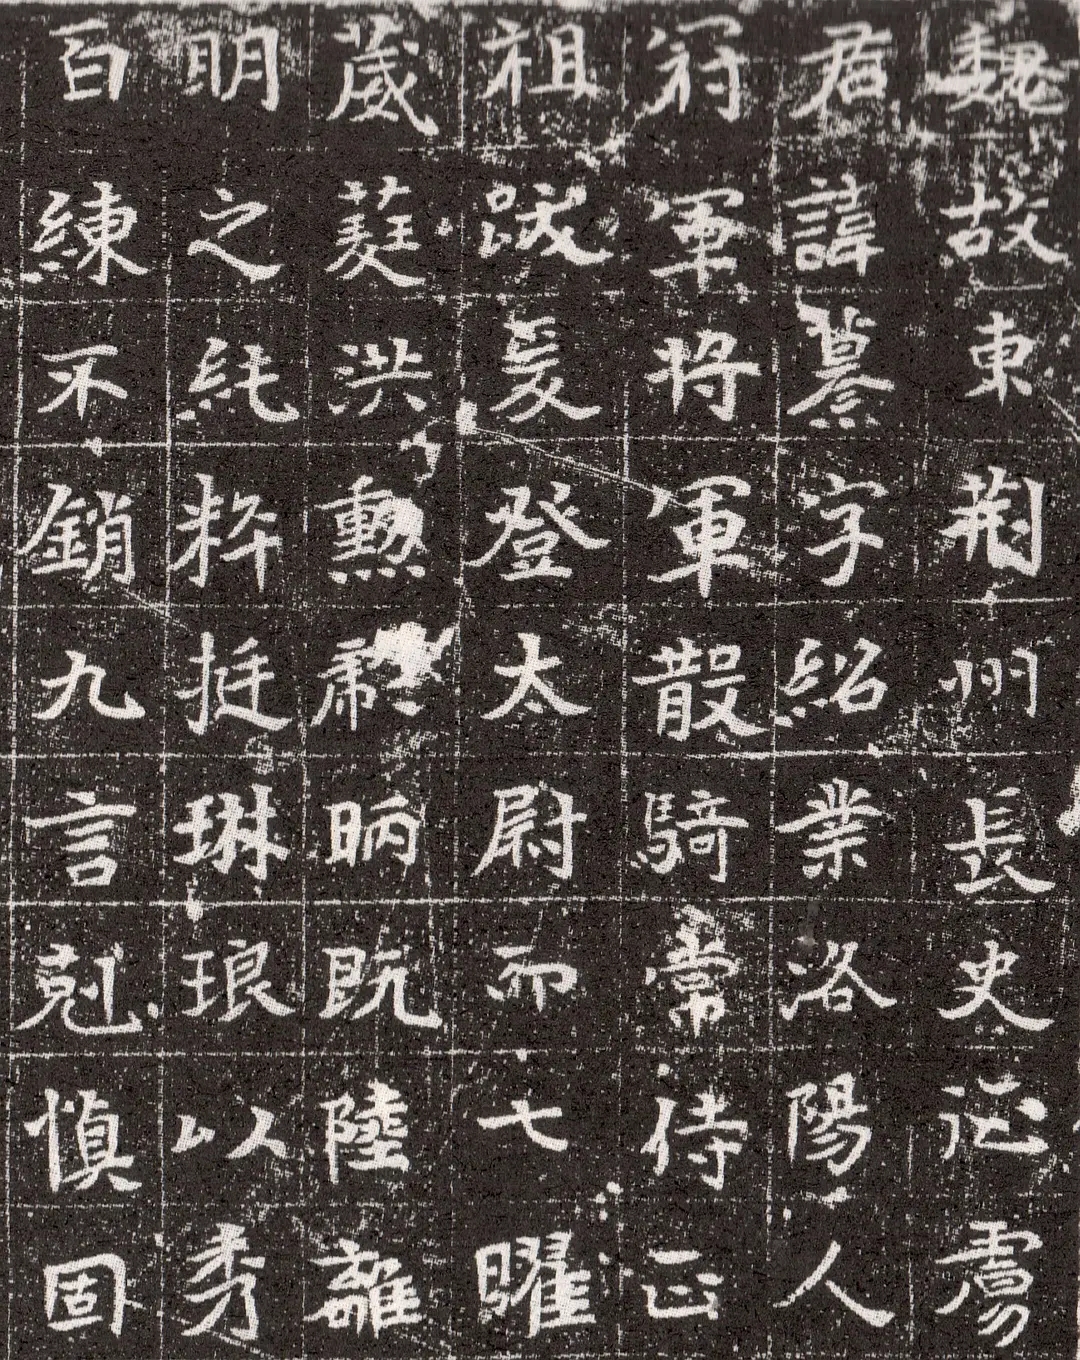 魏故東荊州長史征虜
君諱纂字紹業洛陽人
冠軍將軍散騎常侍正
祖跋爰登太尉而七曜
葳蕤洪勳昞既陸離
明之純粹挺琳琅以秀
百練不銷九言剋慎固